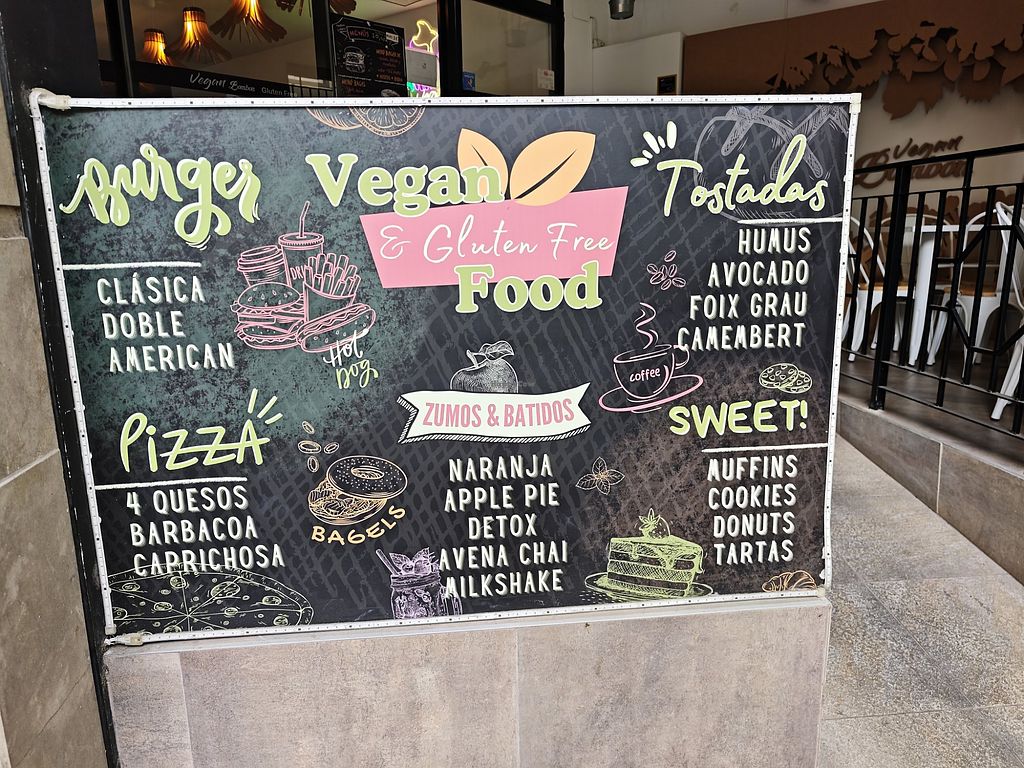 Vegan Bombon Gluten Free
Vegan
Bombon
Burger
CLÁSICA
DOBLE
AMERICAN
Hot
Dog
Vegan
& Gluten Free
Food
Tostadas
HUMUS
AVOCADO
FOIX GRAU
CAMEMBERT
coffee
PIZZA
4 QUESOS
BARBACOA
CAPRICHOSA
BAGELS
ZUMOS & BATIDOS
NARANJA
APPLE PIE
DETOX
AVENA CHAI
MILKSHAKE
SWEET!
MUFFINS
COOKIES
DONUTS
TARTAS